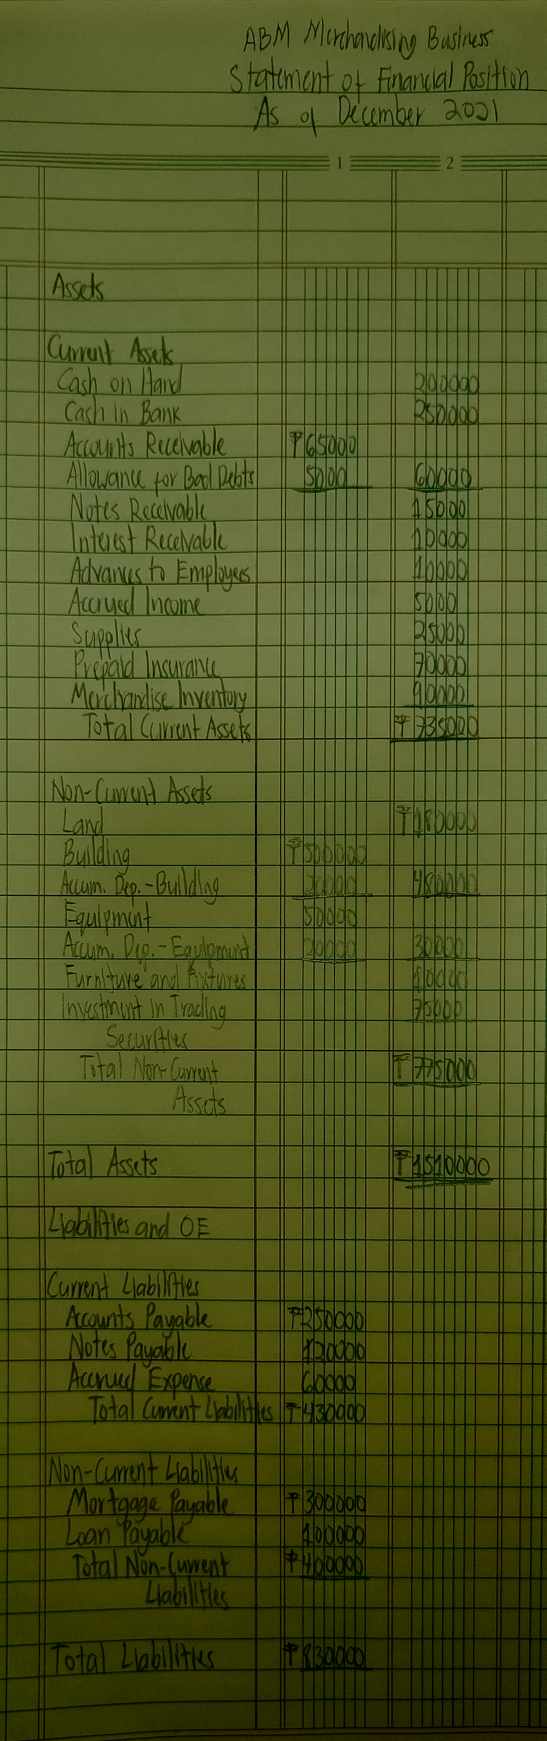 ABM Merchandising Business
Statement of Financial Position
As of December 2021
1 2
Assets
Current Assets
Cash on Hand 200000
Cash in Bank 250000
Accounts Receivable ₱65000
Allowance for Bad Debts 5000 60000
Notes Receivable 15000
Interest Receivable 10000
Advances to Employees 10000
Accrued Income 5000
Supplies 25000
Prepaid Insurance 70000
Merchandise Inventory 90000
Total Current Assets ₱735000
Non-Current Assets
Land ₱180000
Building ₱500000
Accum. Dep.-Building 20000 480000
Equipment 50000
Accum. Dep.-Equipment 20000 30000
Furniture and Fixtures 10000
Investment in Trading 75000
Securities
Total Non-Current ₱775000
Assets
Total Assets ₱1510000
Liabilities and OE
Current Liabilities
Accounts Payable ₱250000
Notes Payable 120000
Accrued Expense 60000
Total Current Liabilities ₱430000
Non-Current Liabilities
Mortgage Payable ₱300000
Loan Payable 100000
Total Non-Current ₱400000
Liabilities
Total Liabilities ₱830000